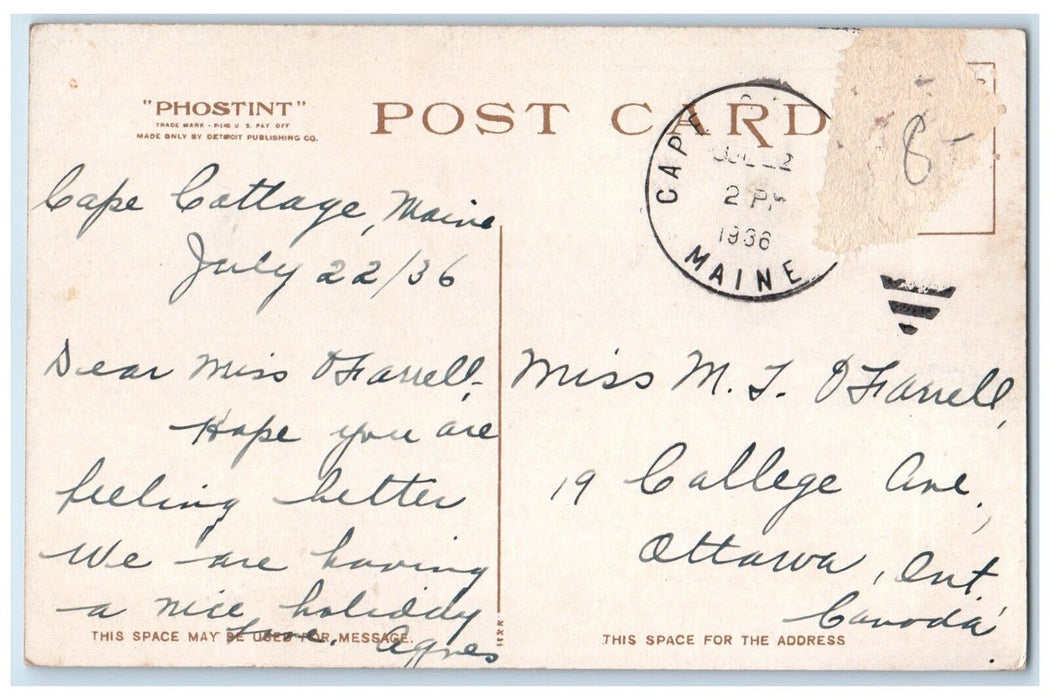 "PHOSTINT"
TRADE MARK - REG U. S. PAT OFF
MADE ONLY BY DETROIT PUBLISHING CO.
POST CARD
CAPE
JUL 22
2 PM
1936
MAINE
8-
Cape Cottage, Maine
July 22/36
Dear Miss O'Farrell,-
Hope you are
feeling better
We are having
a nice holiday
Love, Agnes
THIS SPACE MAY BE USED FOR MESSAGE.
Miss M. T. O'Farrell,
19 College Ave,
Ottawa, Ont.
Canada
THIS SPACE FOR THE ADDRESS